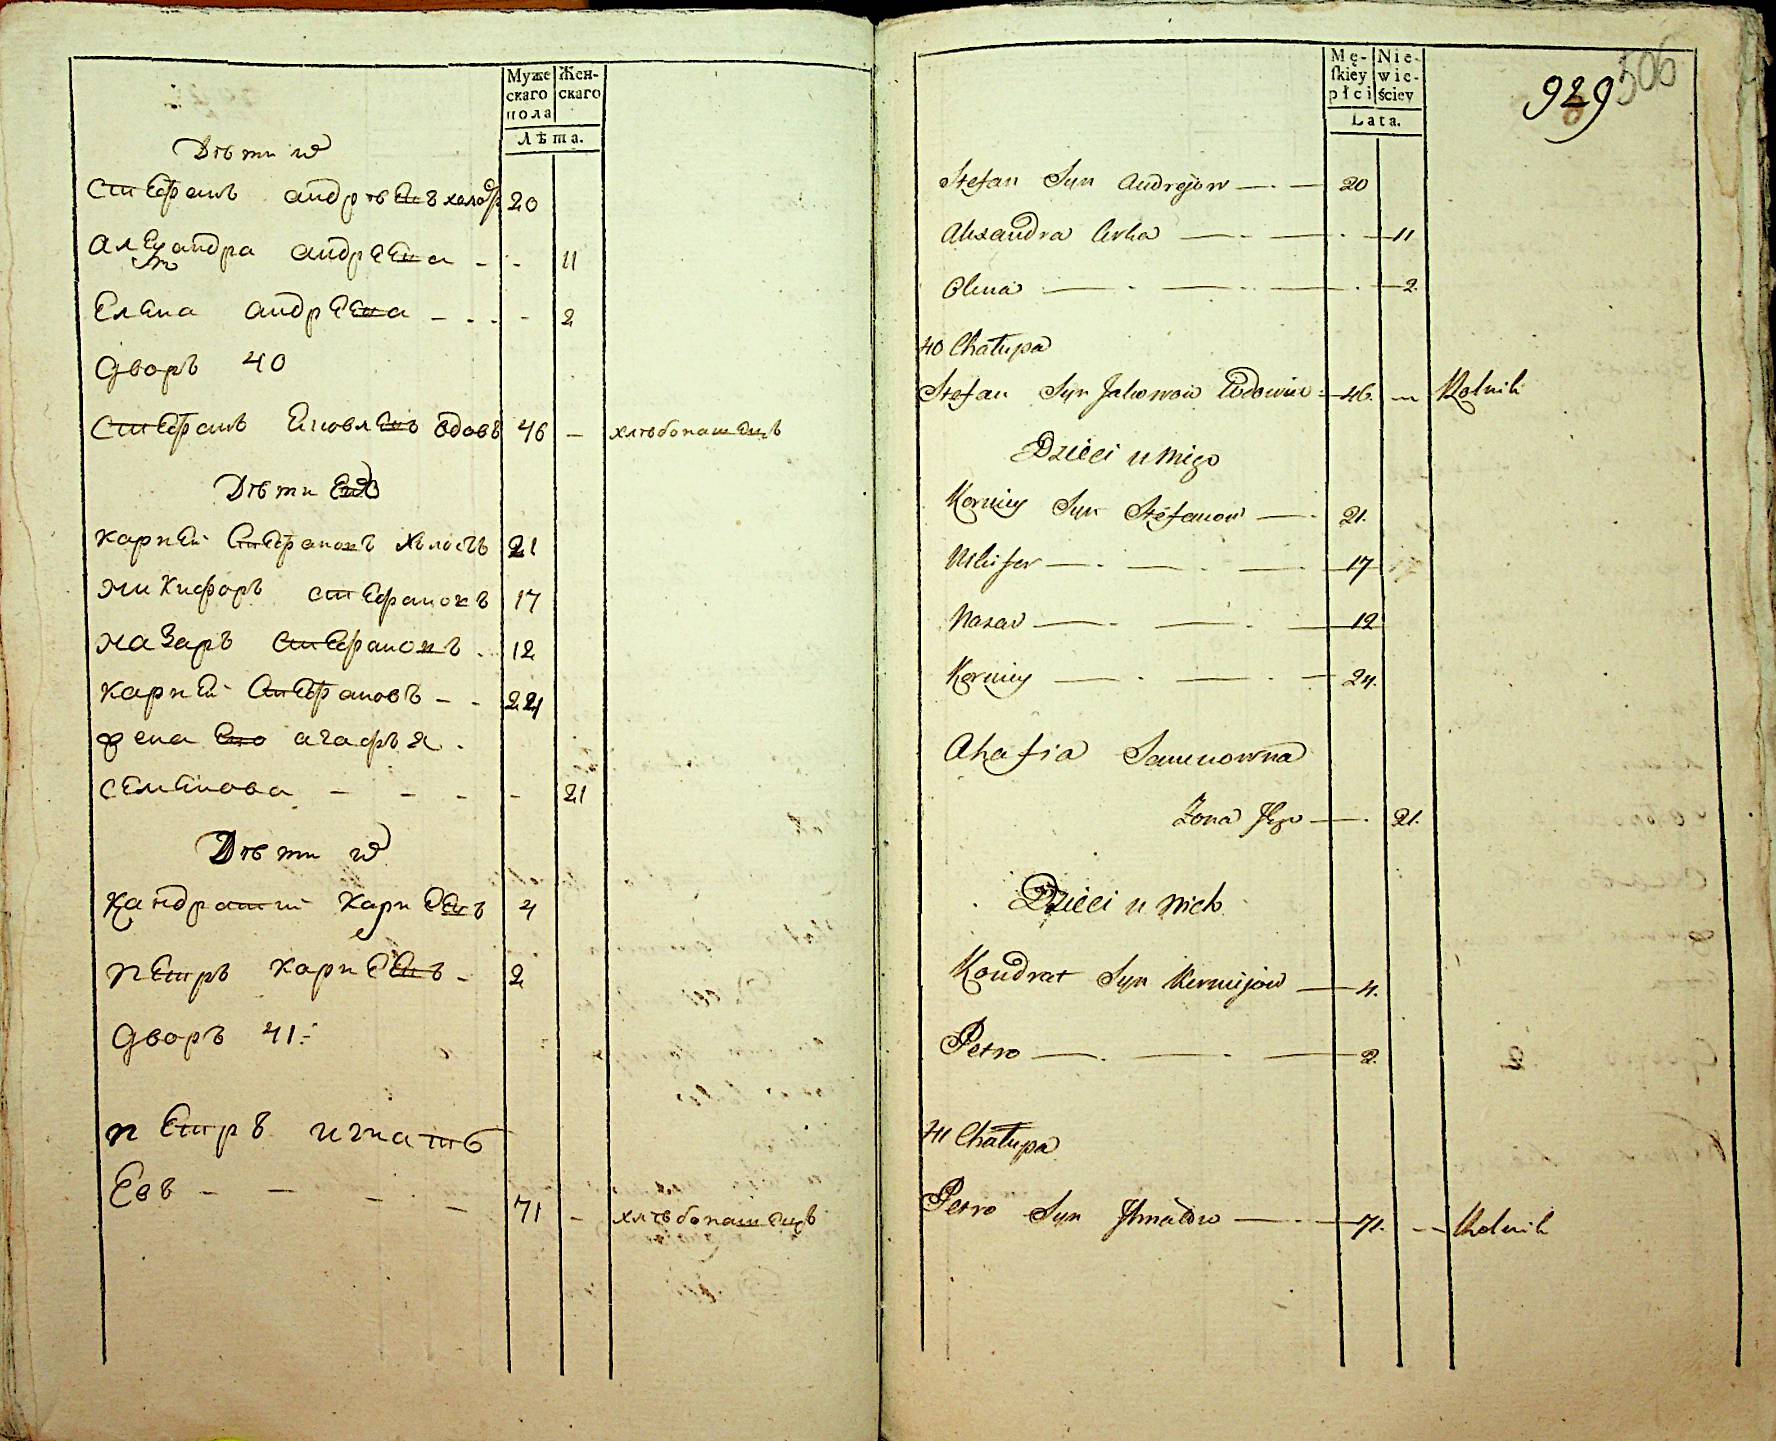 Муже
скаго
пола
Жен-
скаго
Лѣта.
Дѣти их
Стефанъ андрѣевъ холос 20
Александра андреева - - 11
Елена андреева - - - - 2
Дворъ 40
Стефанъ Яковлевъ вдовъ 46 — хлѣбопашецъ
Дѣти Ево
карней Стефановъ Холостъ 21
никифоръ стефановъ 17
назаръ Стефановъ - 12
карней Стефановъ - - 24
жена Ево агафья -
семенова - - - - 21
Дѣти их
кандратий карнеевъ 4
петръ карнеевъ - 2
Дворъ 41
петръ игнать
евъ - - - - 71 - хлѣбопашецъ
Mę-
skiey
płci
Nie-
wie-
ściey
Lata.
929 506
Stefan Syn Andrejow — 20
Alexandra Corka — 11
Olena — 2
40 Chałupa
Stefan Syn Jakowow Wdowiec 46 — Rolnik
Dzieci u niego
Korniey Syn Stefanow — 21.
Nikifor — 17
Nazar — 12
Korniey — 24.
Ahafia Semenowna
Żona Jego — 21.
Dzieci u nich
Kondrat Syn Kerniejow — 4.
Petro — 2.
41 Chałupa
Petro Syn Ihnatow — 71. — Rolnik